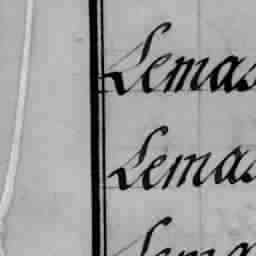 Lemas
Lemas
Lema